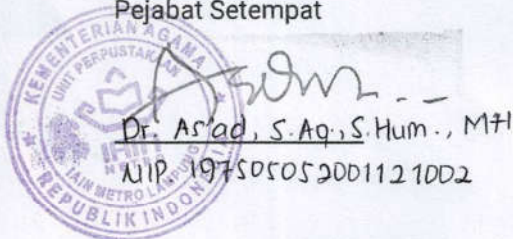 Pejabat Setempat
KEMENTERIAN AGAMA
UNIT PERPUSTAKAAN
IAIN
METRO
IAIN METRO LAMPUNG
REPUBLIK INDONESIA
Dr. As'ad, S.Ag., S.Hum., MH
NIP. 197505052001121002